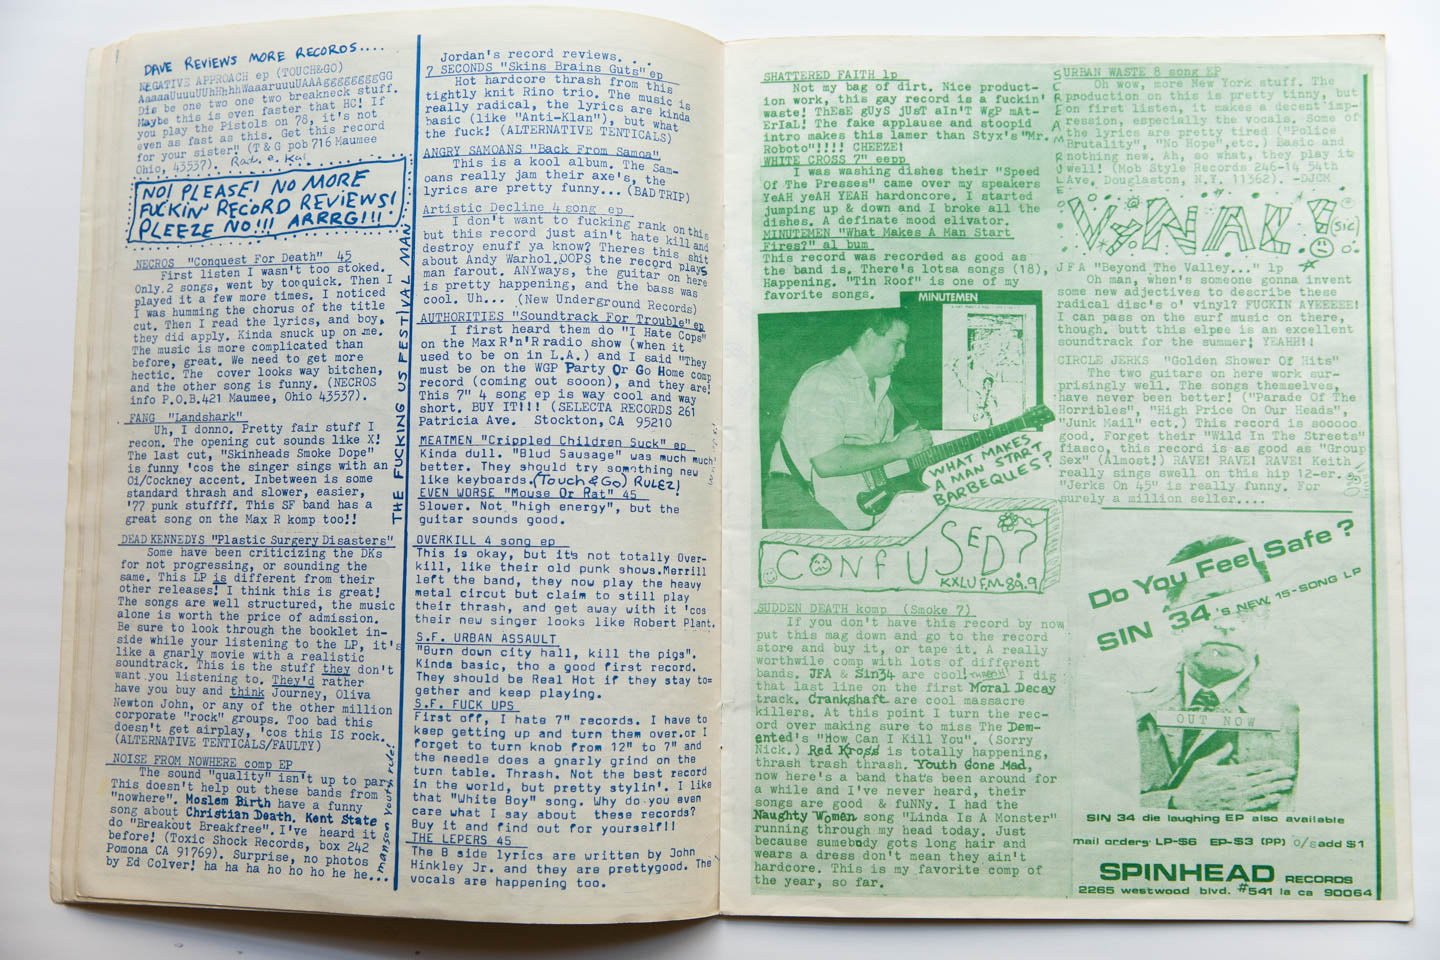 DAVE REVIEWS MORE RECORDS....
NEGATIVE APPROACH ep (TOUCH&GO)
AaaaaUuuuUUhHhhhWaaaruuuUAAAgggggggggGG
Dis be one two one two breakneck stuff.
Maybe this is even faster that HC! If
you play the Pistols on 78, it's not
even as fast as this. Get this record
for your sister" (T & G pob 716 Maumee
Ohio, 43537).
NO! PLEASE! NO MORE
FUCKIN' RECORD REVIEWS!
PLEEZE NO!!! ARRRG!!!
NECROS "Conquest For Death" 45
First listen I wasn't too stoked.
Only 2 songs, went by too quick. Then I
played it a few more times. I noticed
I was humming the chorus of the title
cut. Then I read the lyrics, and boy,
they did apply. Kinda snuck up on me.
The music is more complicated than
before, great. We need to get more
hectic. The cover looks way bitchen,
and the other song is funny. (NECROS
info P.O.B.421 Maumee, Ohio 43537).
FANG "Landshark"
Uh, I donno. Pretty fair stuff I
recon. The opening cut sounds like X!
The last cut, "Skinheads Smoke Dope"
is funny 'cos the singer sings with an
Oi/Cockney accent. Inbetween is some
standard thrash and slower, easier,
'77 punk stuffff. This SF band has a
great song on the Max R komp too!!
DEAD KENNEDYS "Plastic Surgery Disasters"
Some have been criticizing the DKs
for not progressing, or sounding the
same. This LP is different from their
other releases! I think this is great!
The songs are well structured, the music
alone is worth the price of admission.
Be sure to look through the booklet in-
side while your listening to the LP, it's
like a gnarly movie with a realistic
soundtrack. This is the stuff they don't
want you listening to. They'd rather
have you buy and think Journey, Oliva
Newton John, or any of the other million
corporate "rock" groups. Too bad this
doesn't get airplay, 'cos this IS rock.
(ALTERNATIVE TENTICALS/FAULTY)
NOISE FROM NOWHERE comp EP
The sound "quality" isn't up to par
This doesn't help out these bands from
"nowhere". Moslem Birth have a funny
song about Christian Death. Kent State
do "Breakout Breakfree". I've heard it
before! (Toxic Shock Records, box 242
Pomona CA 91769). Surprise, no photos
by Ed Colver! ha ha ha ho ho ho he he...
THE FUCKING US FESTIVAL MAN
manson youth rule!
Jordan's record reviews. . .
7 SECONDS "Skins Brains Guts" ep
Hot hardcore thrash from this
tightly knit Rino trio. The music is
really radical, the lyrics are kinda
basic (like "Anti-Klan"), but what
the fuck! (ALTERNATIVE TENTICALS)
ANGRY SAMOANS "Back From Samoa"
This is a kool album. The Sam-
oans really jam their axe's, the
lyrics are pretty funny... (BAD TRIP)
Artistic Decline 4 song ep
I don't want to fucking rank on this
but this record just ain't hate kill and
destroy enuff ya know? Theres this shit
about Andy Warhol.OOPS the record plays
man farout. ANYways, the guitar on here
is pretty happening, and the bass was
cool. Uh... (New Underground Records)
AUTHORITIES "Soundtrack For Trouble" ep
I first heard them do "I Hate Cops"
on the Max R'n'R radio show (when it
used to be on in L.A.) and I said "They
must be on the WGP Party Or Go Home comp
record (coming out sooon), and they are!
This 7" 4 song ep is way cool and way
short. BUY IT!!! (SELECTA RECORDS 261
Patricia Ave. Stockton, CA 95210
MEATMEN "Crippled Children Suck" ep
Kinda dull. "Blud Sausage" was much much
better. They should try something new
like keyboards.(Touch & Go) RULEZ!
EVEN WORSE "Mouse Or Rat" 45
Slower. Not "high energy", but the
guitar sounds good.
OVERKILL 4 song ep
This is okay, but it's not totally Over-
kill, like their old punk shows.Merrill
left the band, they now play the heavy
metal circut but claim to still play
their thrash, and get away with it 'cos
their new singer looks like Robert Plant.
S.F. URBAN ASSAULT
"Burn down city hall, kill the pigs".
Kinda basic, tho a good first record.
They should be Real Hot if they stay to=
gether and keep playing.
S.F. FUCK UPS
First off, I hate 7" records. I have to
keep getting up and turn them over.or I
forget to turn knob from 12" to 7" and
the needle does a gnarly grind on the
turn table. Thrash. Not the best record
in the world, but pretty stylin'. I like
that "White Boy" song. Why do you even
care what I say about these records?
Buy it and find out for yourself!!
THE LEPERS 45
The B side lyrics are written by John
Hinkley Jr. and they are prettygood. The
vocals are happening too.
SHATTERED FAITH lp
Not my bag of dirt. Nice product-
ion work, this gay record is a fuckin'
waste! ThEsE gUyS jUsT aIn'T WgP mAt-
ErIaL! The fake applause and stoopid
intro makes this lamer than Styx's "Mr.
Roboto"!!!! CHEEZE!
WHITE CROSS 7" eepp
I was washing dishes their "Speed
Of The Presses" came over my speakers
YeAH yeAH YEAH hardoncore. I started
jumping up & down and I broke all the
dishes. A definate mood elivator.
MINUTEMEN "What Makes A Man Start
Fires?" al bum
This record was recorded as good as
the band is. There's lotsa songs (18),
Happening. "Tin Roof" is one of my
favorite songs.
MINUTEMEN
WHAT MAKES
A MAN START
BARBEQUES?
CONFUSED?
KXLU F.M. 88.9
SUDDEN DEATH komp (Smoke 7)
If you don't have this record by now
put this mag down and go to the record
store and buy it, or tape it. A really
worthwile comp with lots of different
bands. JFA & Sin34 are cool! I dig
that last line on the first Moral Decay
track. Crankshaft are cool massacre
killers. At this point I turn the rec-
ord over making sure to miss The Dem-
ented's "How Can I Kill You". (Sorry
Nick.) Red Kross is totally happening,
thrash trash thrash. Youth Gone Mad,
now here's a band that's been around for
a while and I've never heard, their
songs are good & fuNNy. I had the
Naughty Women song "Linda Is A Monster"
running through my head today. Just
because sumebody gots long hair and
wears a dress don't mean they ain't
hardcore. This is my favorite comp of
the year, so far.
URBAN WASTE 8 song EP
Oh wow, more New York stuff. The
production on this is pretty tinny, but
on first listen, it makes a decent imp-
ression, especially the vocals. Some of
the lyrics are pretty tired ("Police
Brutality", "No Hope",etc.) Basic and
nothing new. Ah, so what, they play it
well! (Mob Style Records 246-14 54th
Ave. Douglaston, N.Y. 11362). -DJCM
VYNAL! (SIC)
JFA "Beyond The Valley..." lp
Oh man, when's someone gonna invent
some new adjectives to describe these
radical disc's o' vinyl? FUCKIN AYEEEEE!
I can pass on the surf music on there,
though. butt this elpee is an excellent
soundtrack for the summer! YEAHH!!
CIRCLE JERKS "Golden Shower Of Hits"
The two guitars on here work sur-
prisingly well. The songs themselves,
have never been better! ("Parade Of The
Horribles", "High Price On Our Heads",
"Junk Mail" ect.) This record is sooooo
good. Forget their "Wild In The Streets"
fiasco, this record is as good as "Group
Sex" (Almost!) RAVE! RAVE! RAVE! Keith
really sings swell on this hip 12-er.
"Jerks On 45" is really funny. For
surely a million seller....
Do You Feel Safe?
SIN 34's NEW, 15-SONG LP
OUT NOW
SIN 34 die laughing EP also available
mail orders: LP-$6 EP-$3 (PP) o/s add $1
SPINHEAD RECORDS
2265 westwood blvd. #541 la ca 90064